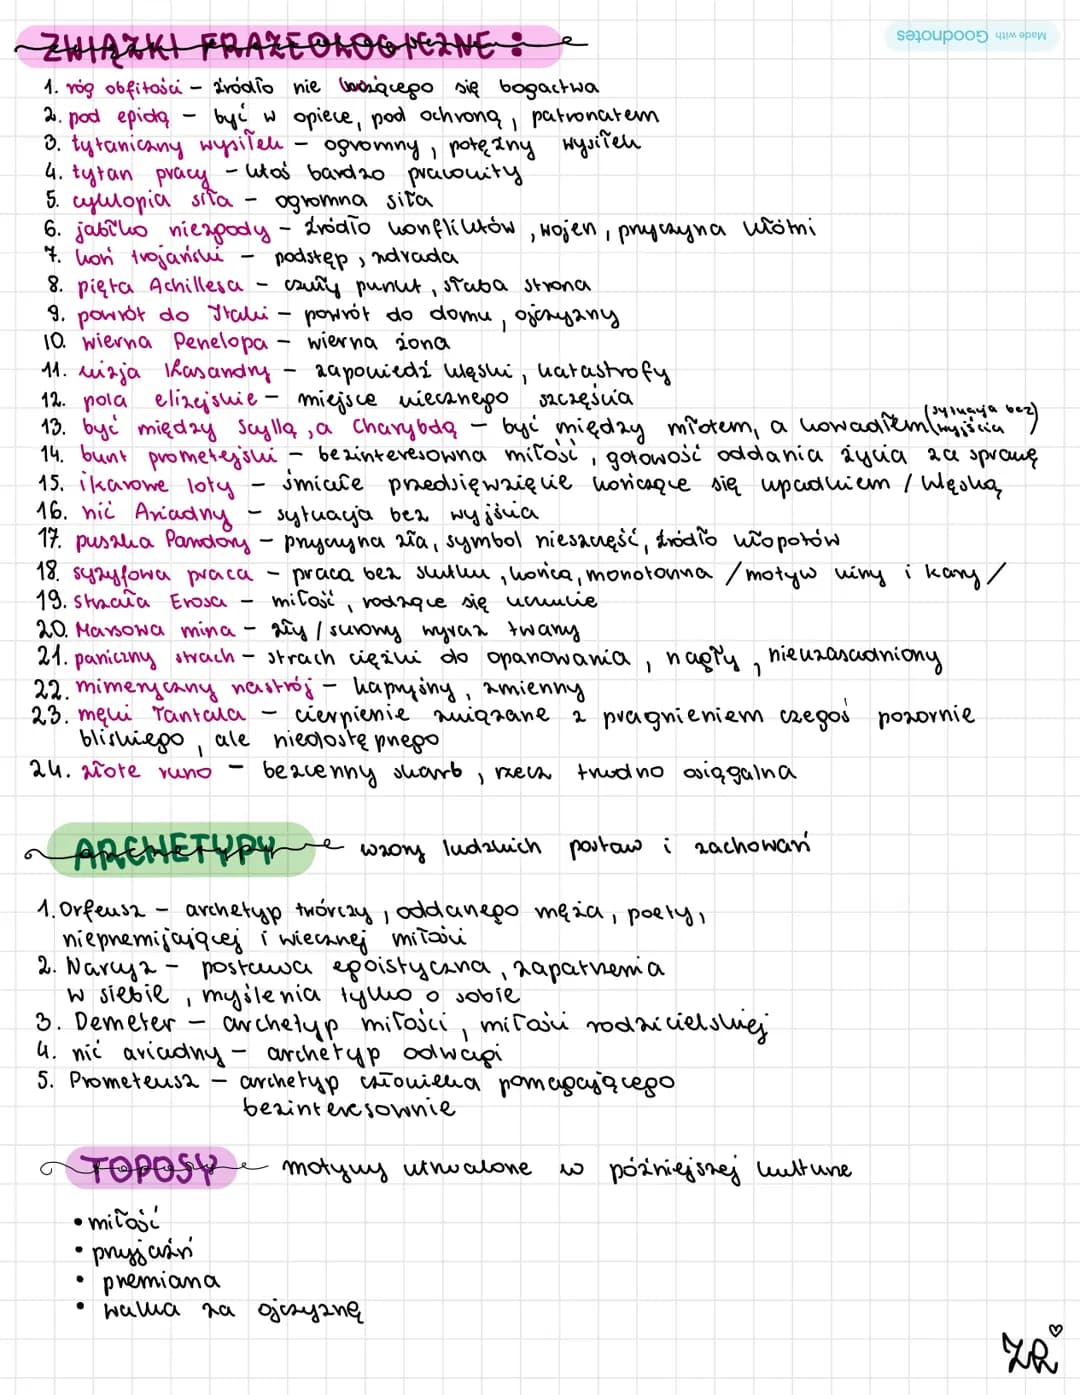 ZWIĄZKI FRAZEOLOGICZNE:
Made with Goodnotes
1. róg obfitości - źródło nie kończącego się bogactwa
2. pod egidą - być w opiece, pod ochroną, patronatem
3. tytaniczny wysiłek - ogromny, potężny wysiłek
4. tytan pracy - ktoś bardzo pracowity
5. cyklopia siła - ogromna siła
6. jabłko niezgody - źródło konfliktów, wojen, przyczyna kłótni
7. koń trojański - podstęp, zdrada
8. pięta Achillesa - czuły punkt, słaba strona
9. powrót do Itaki - powrót do domu, ojczyzny
10. wierna Penelopa - wierna żona
11. wizja Kasandry - zapowiedź klęski, katastrofy
12. pola elizejskie - miejsce wiecznego szczęścia
13. być między Scyllą, a Charybdą - być między młotem, a kowadłem (sytuacja bez wyjścia)
14. bunt prometejski - bezinteresowna miłość, gotowość oddania życia za sprawę
15. ikarowe loty - śmiałe przedsięwzięcie kończące się upadkiem / klęską
16. nić Ariadny - sytuacja bez wyjścia
17. puszka Pandory - przyczyna zła, symbol nieszczęść, źródło kłopotów
18. syzyfowa praca - praca bez skutku, końca, monotonna /motyw winy i kary/
19. strzała Erosa - miłość, rodzące się uczucie
20. Marsowa mina - zły / surowy wyraz twarzy
21. paniczny strach - strach ciężki do opanowania, nagły, nieuzasadniony
22. mimeryczny nastrój - kapryśny, zmienny
23. męki Tantala - cierpienie związane z pragnieniem czegoś pozornie
bliskiego, ale niedostępnego
24. złote runo - bezcenny skarb, rzecz trudno osiągalna
ARCHETYPY wzory ludzkich postaw i zachowań
1. Orfeusz - archetyp twórczy, oddanego męża, poety,
nieprzemijającej i wiecznej miłości
2. Narcyz - postawa egoistyczna, zapatrzenia
w siebie, myślenia tylko o sobie
3. Demeter - archetyp miłości, miłości rodzicielskiej
4. nić ariadny - archetyp odwagi
5. Prometeusz - archetyp człowieka pomagającego
bezinteresownie
TOPOSY motywy utrwalone w późniejszej kulturze
• miłość
• przyjaźń
• przemiana
• walka za ojczyznę
ZR